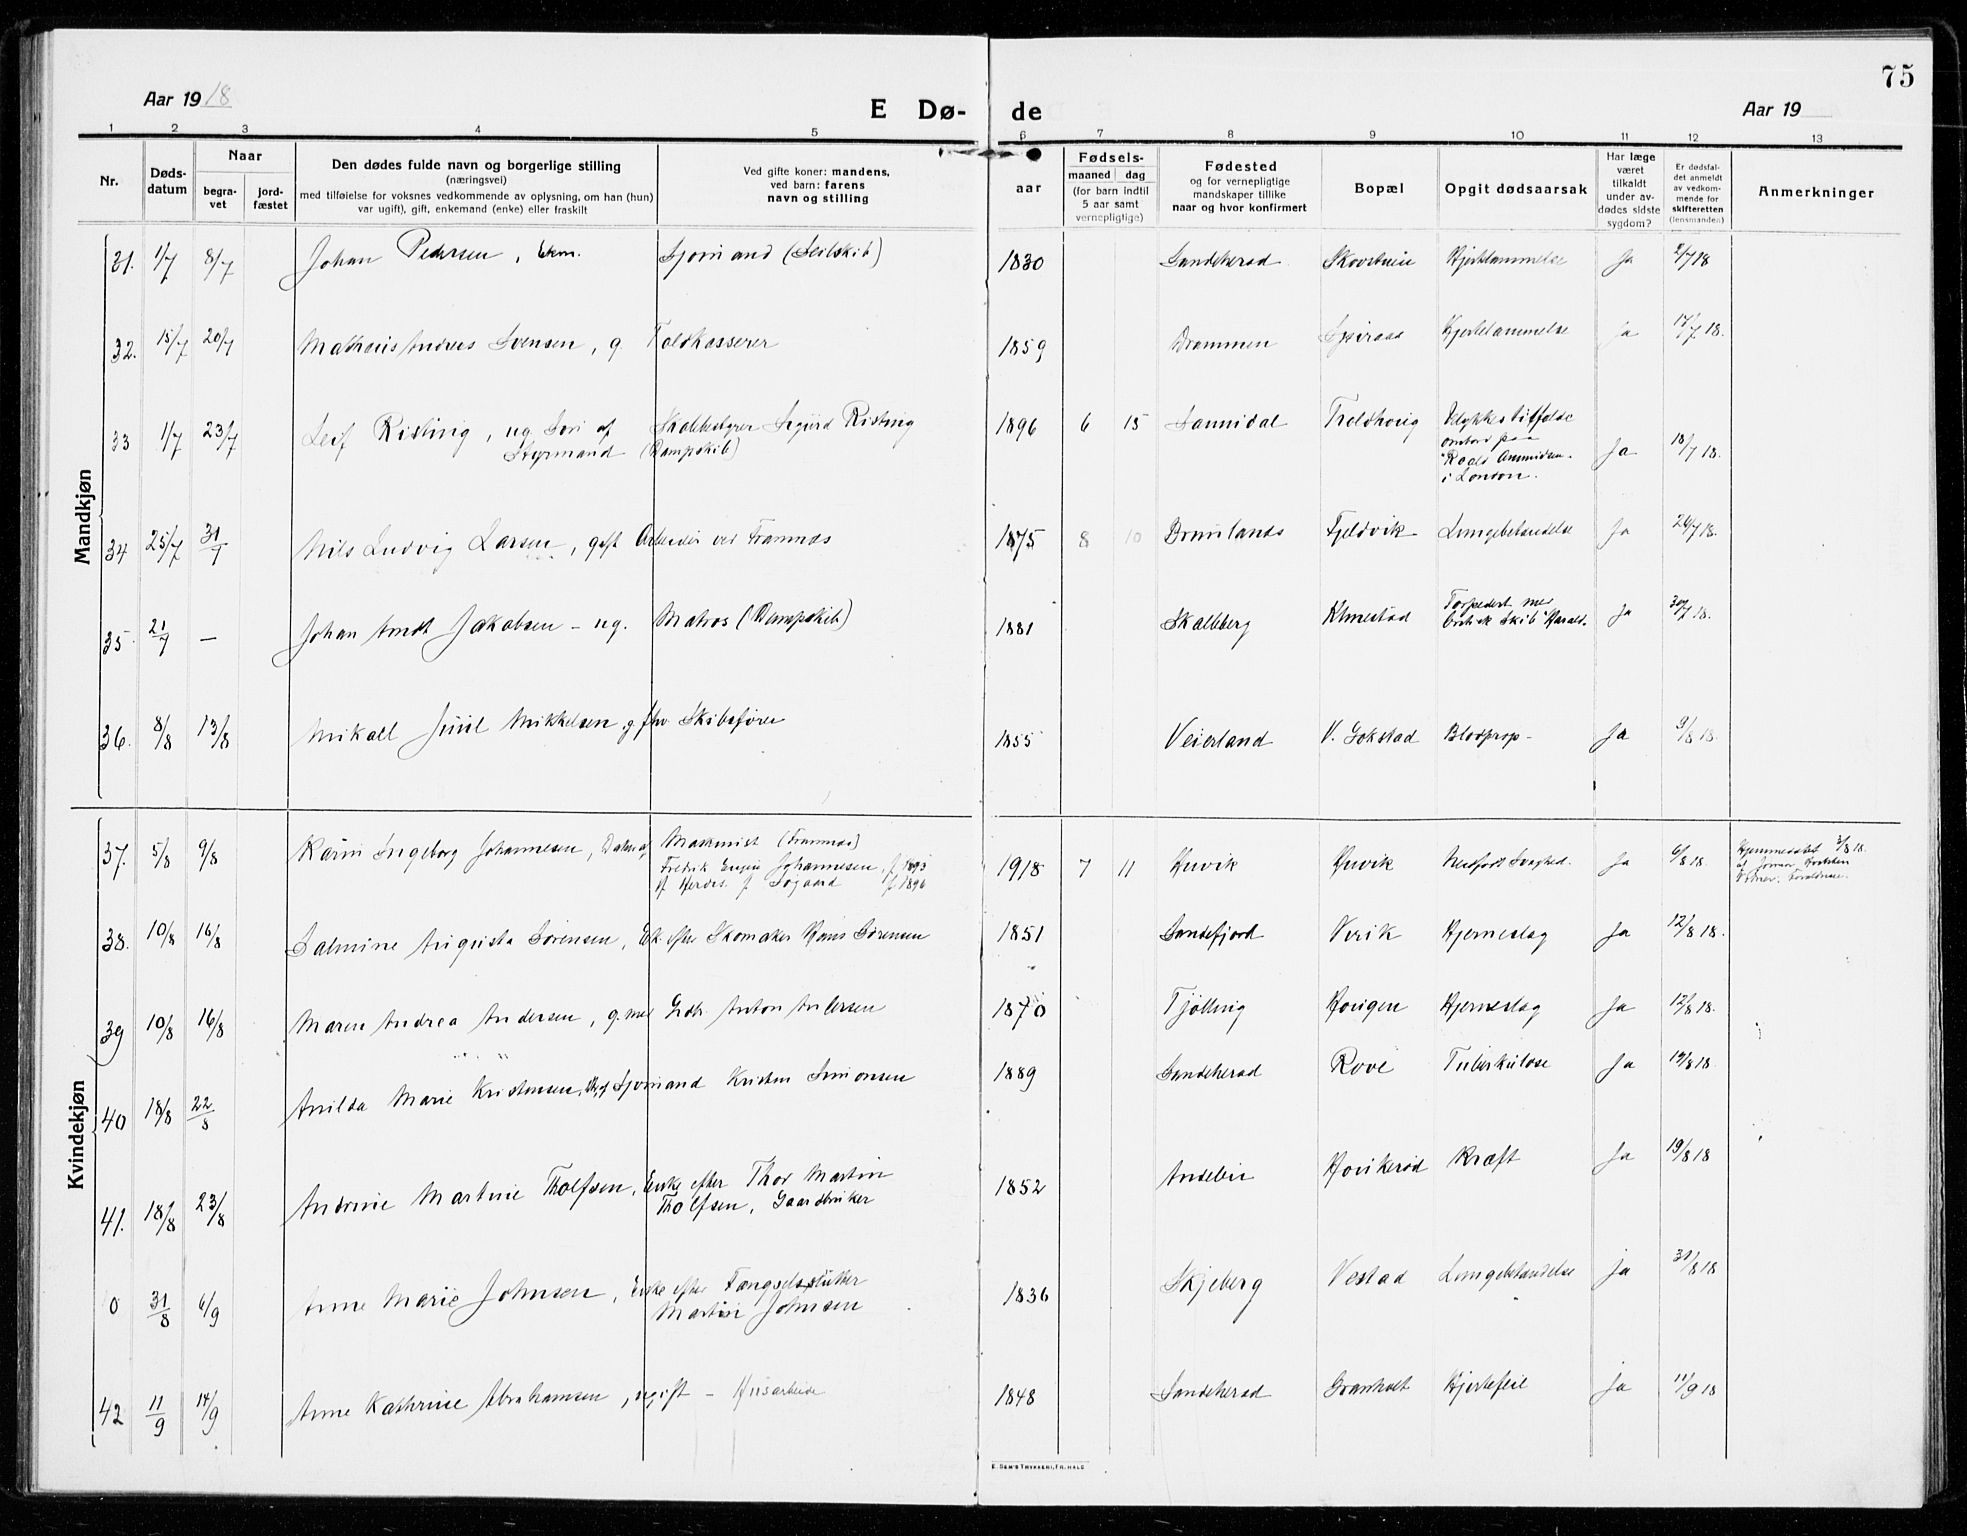 75
Aar 1918
E Dø- de
Aar 19
1 2 3 4 5 6 7 8 9 10 11 12 13
Nr.
Døds-
datum
Naar
begra-
vet
jord-
fæstet
Den dødes fulde navn og borgerlige stilling
(næringsvei)
med tilføielse for voksnes vedkommende av oplysning, om han (hun)
var ugift), gift, enkemand (enke) eller fraskilt
Ved gifte koner: mandens,
ved barn: farens
navn og stilling
aar
Fødsels-
maaned dag
(for barn indtil
5 aar samt
vernepligtige)
Fødested
og for vernepligtige
mandskaper tillike
naar og hvor konfirmert
Bopæl
Opgit dødsaarsak
Har læge
været
tilkaldt
under av-
dødes sidste
sygdom?
Er dødsfal-
det anmeldt
av vedkom-
mende for
skifteretten
(lensmanden)
Anmerkninger
Mandkjøn
31. 1/7 8/7 Johan Pedersen, Ekm. Sjømand (Seilskib) 1830 Sandeherad Hjertelammelse Ja 2/7 18
32. 15/7 20/7 Mathæus Andreas Svensen, g. Toldkasserer 1859 Drammen Hjertelammelse ja 17/7 18.
33 1/7 23/7 Leif Risting, ug. Søn af Skolebstyrer Sigurd Risting 1896 6 15 Sannidal Troldhoug Ulykkestilfælde
Styrmand (Dampskib) ombord paa
"Roald Amundsen" Ja 18/7 18.
i London.
34 25/7 31/7 Nils Ludvig Larsen, gift Arbeider ved Framnæs 1875 8 10 Brunlanæs Fjeldvik Lungebetændelse Ja 26/7 18.
35 21/7 — Johan Arndt Jakobsen – ug. Matros (Dampskib) 1881 Skalleberg Klmestad Torpedert med Ja 30/7 18.
Skib "Harald".
36. 8/8 13/8 Mikael Juul Mikkelsen g. fhv. Skibsfører 1855 Veierland V. Gokstad Blodprop – Ja 9/8 18.
Kvindekjøn
37. 5/8 9/8 Karin Ingeborg Johannesen, Datter af Maskinist (Framnæs)
Fredrik Johannesen, f. 1893
f. Søgaard f. 1896 1918 7 11 Medfødt Svaghed. Ja 6/8 18. Hjemmedøbt 3/8 18.
38. 10/8 16/8 Salmine Augusta Sørensen, Ek. efter Skomaker Hans Sørensen 1851 Sandefjord Virik Hjerneslag Ja 12/8 18.
39 10/8 16/8 Maren Andrea Andersen, g. med Gdb. Anton Andersen 1870 Tjølling Hougen Hjerneslag Ja 12/8 18.
40 18/8 22/8 Anilda Marie Kristensen, Sjømand Kristen Simonsen 1889 Sandeherad Rove Tuberkulose Ja 19/8 18.
41. 18/8 23/8 Andrine Martine Tholfsen, Enke efter Thor Martin 1852 Andebu Hovikerød Kræft Ja 19/8 18
Tholfsen, Gaardbruker
0 31/8 6/9 Anne Marie Johnsen, Enke efter Fængselsslutter 1836 Skjeberg Vestad Lungebetændelse Ja 31/8 18
Martin Johnsen
42 11/9 14/9 Anne Kathrine Abrahamsen, ugift – Husarbeide 1848 Sandeherad Granholt Hjertefeil Ja 11/9 18
E. SEM'S TRYKKERI, FR.HALD